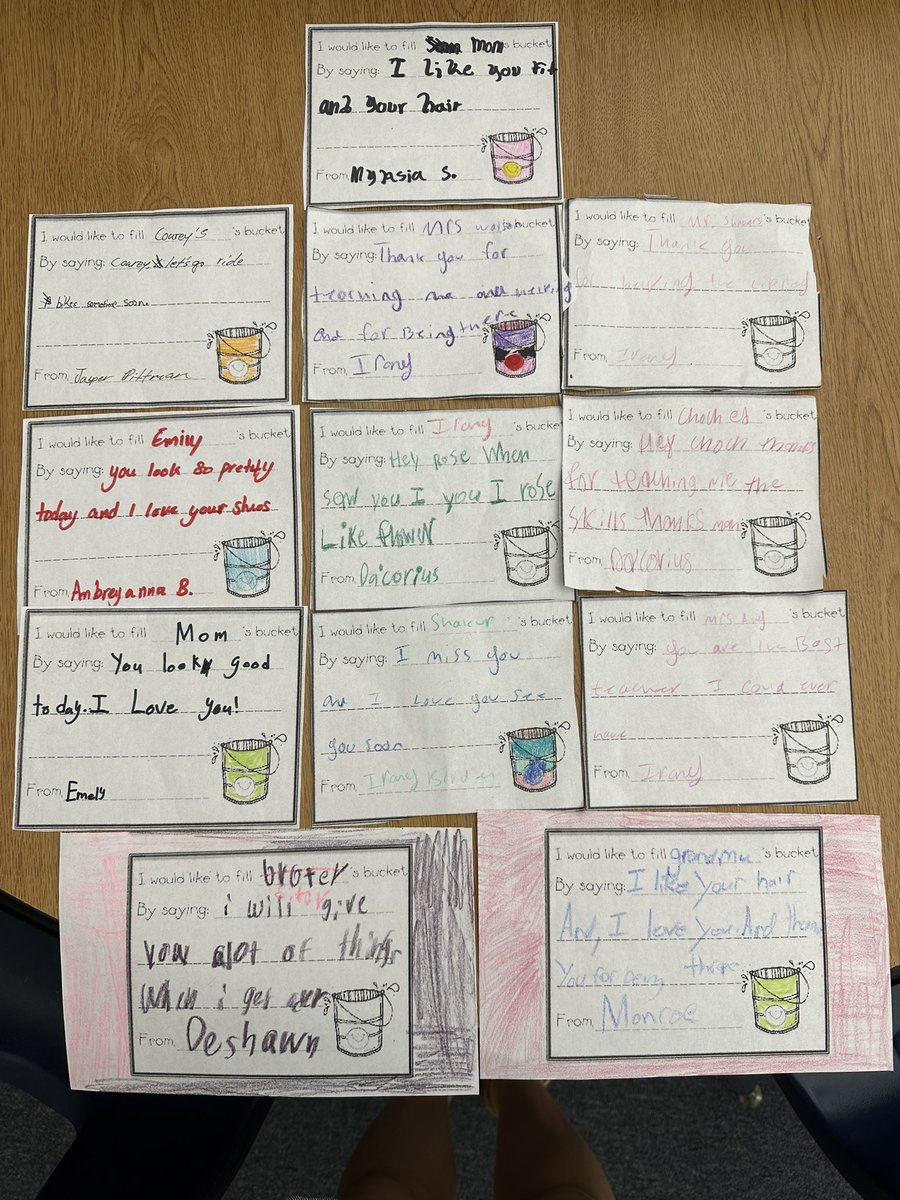 I would like to fill Mom's bucket
By saying: I like you fit
and your hair
From Myasia S.
I would like to fill Courey's 's bucket
By saying: Courey, let's go ride
bikes sometime soon.
From Jasper Pittman
I would like to fill Mrs 's bucket
By saying: Thank you for
me and
and for Being there
From Irany
I would like to fill Mr. 's bucket
By saying: Thank you
for the
From Irany
I would like to fill Emily 's bucket
By saying: you look so pretty
today and I love your shos
From Aubreyanna B.
I would like to fill Irany 's bucket
By saying: Hey Rose When
saw you I you I rose
Like flower
From Da'corius
I would like to fill choch ed 's bucket
By saying: Hey choch thanks
for teaching me the
skills thanks man
From Da'corius
I would like to fill Mom 's bucket
By saying: You look good
today. I Love you!
From Emely
I would like to fill Shakur 's bucket
By saying: I miss you
and I love you see
you soon
From Irany
I would like to fill Mrs 's bucket
By saying: you are the Best
teacher I could ever
have
From Irany
I would like to fill broter 's bucket
By saying: i will give
you alot of things
When i get
From Deshawn
I would like to fill grandma 's bucket
By saying: I like your hair
And, I love you. And thank
You for being three
From Monroe